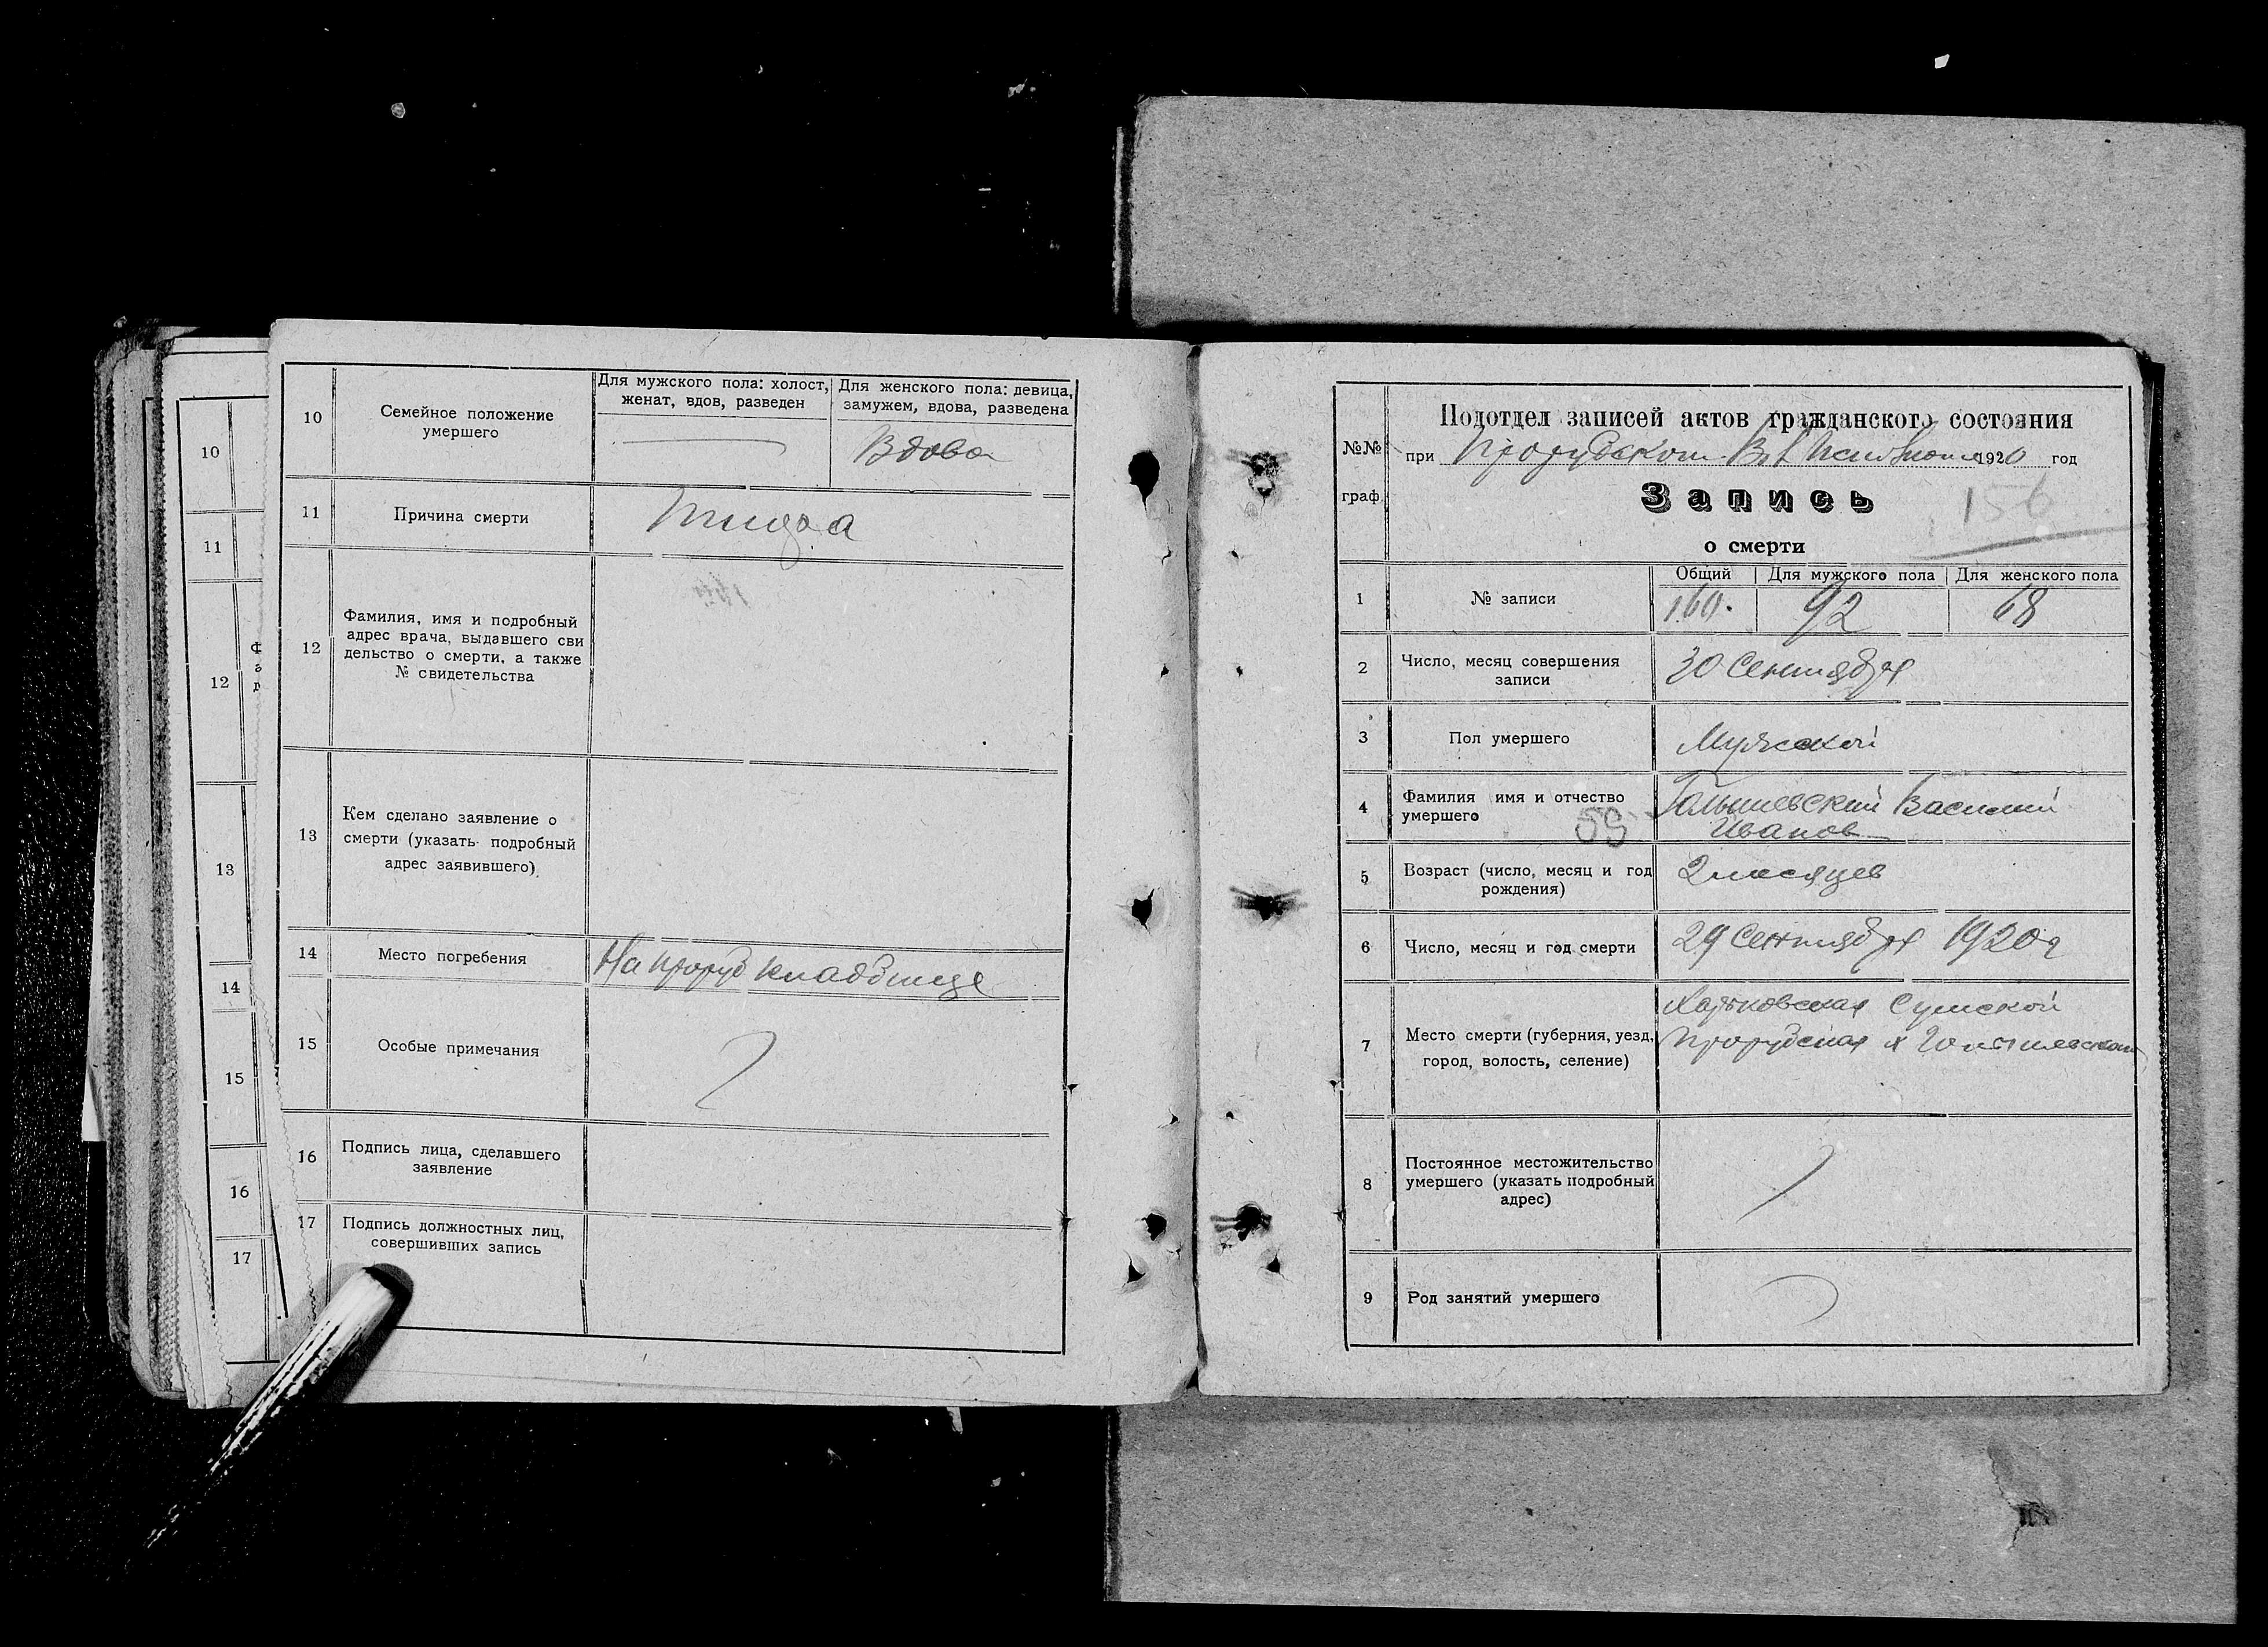 10
11
12
13
14
15
16
17
10
Семейное положение
умершего
Для мужского пола: холост,
женат, вдов, разведен
Для женского пола: девица,
замужем, вдова, разведена
Вдова
11
Причина смерти
12
Фамилия, имя и подробный
адрес врача, выдавшего сви
дельство о смерти, а также
№ свидетельства
13
Кем сделано заявление о
смерти (указать подробный
адрес заявившего)
14
Место погребения
На проруб кладбище
15
Особые примечания
16
Подпись лица, сделавшего
заявление
17
Подпись должностных лиц,
совершивших запись
№№
граф.
Подотдел записей актов гражданского состояния
при 1920 год
Запись
156
о смерти
1
№ записи
Общий
Для мужского пола
Для женского пола
160.
92
68
2
Число, месяц совершения
записи
30 Сентября
3
Пол умершего
Мужской
4
Фамилия имя и отчество
умершего
59
Гольшевский Василий
Иванов
5
Возраст (число, месяц и год
рождения)
2 месяцев
6
Число, месяц и год смерти
29 Сентября 1920 г
7
Место смерти (губерния, уезд,
город, волость, селение)
Харьковская Сумской
Прорубская х
8
Постоянное местожительство
умершего (указать подробный
адрес)
9
Род занятий умершего